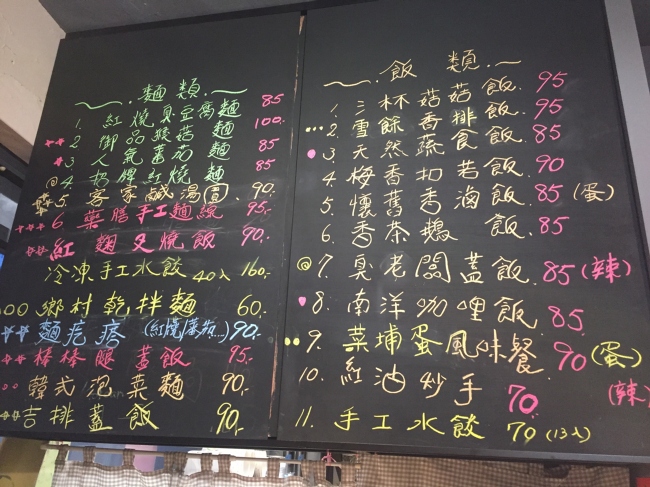 麵類
1. 紅燒臭豆腐麵 85
2 御品猴菇麵 100.
3. 人氣蕃茄麵 85
4 招牌紅燒麵 85
5. 客家鹹湯圓. 90.
6 藥膳手工麵線 95.
紅麴叉燒飯 90.
冷凍手工水餃 40入 160.
鄉村乾拌麵 60.
麵疙瘩 (紅燒/蕃茄...) 90.
棒棒腿蓋飯 95.
韓式泡菜麵 90.
吉排蓋飯 90.
飯類
1. 三杯菇菇飯. 95
2. 雪餘香排飯 95
3. 天然蔬食飯. 85
4. 梅香扣若飯 90
5. 懷舊香滷飯. 85 (蛋)
6. 香茶鵝飯 85
7. 臭老闆蓋飯. 85 (辣)
8. 南洋咖哩飯 85
9. 菜埔蛋風味餐 90 (蛋)
10. 紅油炒手 70. (辣)
11. 手工水餃 70 (13入)